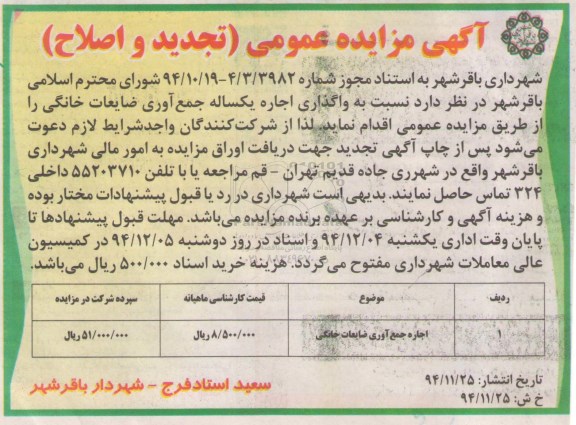 آگهی مزایده عمومی (تجدید و اصلاح)
شهرداری باقرشهر به استناد مجوز شماره ۴/۳/۳۹۸۲-۹۴/۱۰/۱۹ شورای محترم اسلامی
باقرشهر در نظر دارد نسبت به واگذاری اجاره یکساله جمع‌آوری ضایعات خانگی را
از طریق مزایده عمومی اقدام نماید. لذا از شرکت‌کنندگان واجدشرایط لازم دعوت
می‌شود پس از چاپ آگهی تجدید جهت دریافت اوراق مزایده به امور مالی شهرداری
باقرشهر واقع در شهرری جاده قدیم تهران - قم مراجعه یا با تلفن ۵۵۲۰۳۷۱۰ داخلی
۳۲۴ تماس حاصل نمایند. بدیهی است شهرداری در رد یا قبول پیشنهادات مختار بوده
و هزینه آگهی و کارشناسی بر عهده برنده مزایده می‌باشد. مهلت قبول پیشنهادها تا
پایان وقت اداری یکشنبه ۹۴/۱۲/۰۴ و اسناد در روز دوشنبه ۹۴/۱۲/۰۵ در کمیسیون
عالی معاملات شهرداری مفتوح می‌گردد. هزینه خرید اسناد ۵۰۰/۰۰۰ ریال می‌باشد.
ردیف موضوع قیمت کارشناسی ماهیانه سپرده شرکت در مزایده
۱ اجاره جمع‌آوری ضایعات خانگی ۸/۵۰۰/۰۰۰ ریال ۵۱/۰۰۰/۰۰۰ ریال
تاریخ انتشار: ۹۴/۱۱/۲۵
خ ش: ۹۴/۱۱/۲۵
سعید استادفرج - شهردار باقرشهر